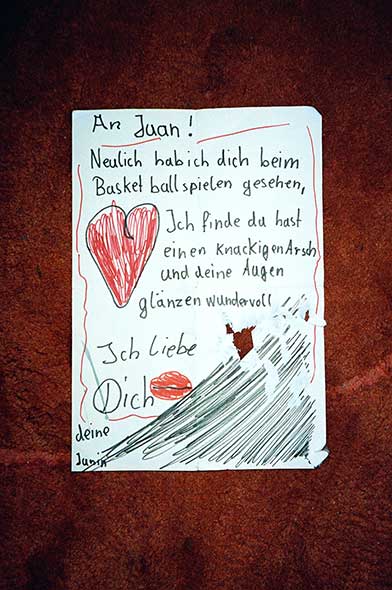 An Juan!
Neulich hab ich dich beim
Basket ball spielen gesehen,
Ich finde du hast
einen knackigen Arsch
und deine Augen
glänzen wundervoll
Ich liebe
Dich
deine
Junin